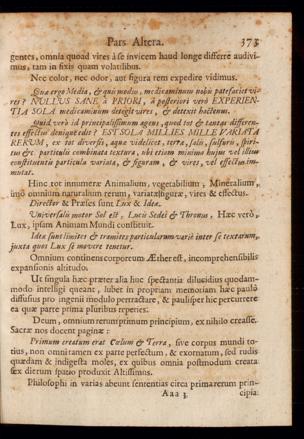 Pars Altera. 373
gentes, omnia quoad vires à se invicem haud longe differre audivi-
mus, tam in fixis quam volatilibus.
Nec color, nec odor, aut figura rem expedire vidimus.
Quæ ergo Media, & quis modus, medicaminum nobis patefaciet vi-
res? NULLUS SANE à PRIORI, à posteriori verò EXPERIEN-
TIA SOLA medicaminum detegit vires, & detexit hactenus.
Quid verò id principalissimum agens, quod tot & tantas differen-
tes effectus denique edit? EST SOLA MILLIES MILLE VARIATA
RERUM, ex tot diversis, aquæ videlicet, terra, salis, sulfuris, spiri-
tus &c. particulis combinata textura, ubi etiam minima hujus vel illius
constituentis particula variata, & figuram, & vires, vel effectus im-
mutat.
Hinc tot innumeræ Animalium, vegetabilium, Mineralium,
imò omnium naturalium rerum, variatæ figuræ, vires & effectus.
Director & Præses sunt Lux & Ideæ.
Universalis motor Sol est, Lucis Sedes & Thronus, Hæc verò,
Lux, ipsam Animam Mundi constituit.
Ideæ sunt limites & tramites particularum variè inter se textarum,
juxta quos Lux se movere tenetur.
Omnium continens corporeum Æther est, incomprehensibilis
expansionis altitudo.
Ut singula hæc præter alia huc spectantia dilucidius quodam-
modo intelligi queant, lubet in propriam metoriam hæc paulò
diffusius pro ingenii modulo pertractare, & paulisper hic percurrere
ea quæ parte prima pluribus reperies:
Deum, omnium rerum primum principium, ex nihilo creasse.
Sacræ nos docent paginæ:
Primum creatum erat Cœlum & Terra, sive corpus mundi to-
tius, non omni tamen ex parte perfectum, & exornatum, sed rudis
quædam & indigesta moles, ex quibus omnia postmodum creata
sex dierum spatio produxit Altissimus.
Philosophi in varias abeunt sententias circa primarum prin-
Aaa 3 cipia: